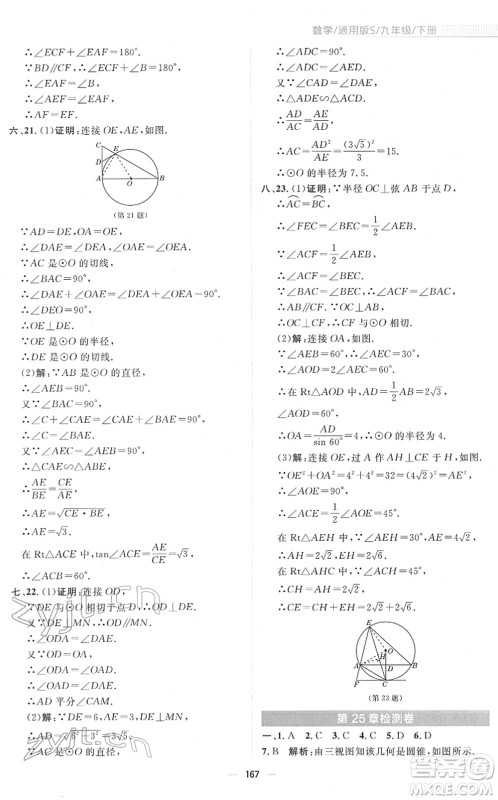 数学/通用版S/九年级/下册
∴∠ECF+∠AFE=180°.
∵BD∥CF,∴∠ECF+∠E=180°.
∴∠E=∠AFE.
∴AF=EF.
六、21. (1)证明:连接OE,AE,如图.
E
C
A
O
B
(第21题)
∵AD=DE,OA=OE,
∴∠DAE=∠DEA,∠OAE=∠OEA.
∵AC是⊙O的切线,
∴∠BAC=90°.
∴∠DAE+∠OAE=∠DEA+∠OEA=90°.
∴∠DEO=90°.
∴OE⊥DE.
∵OE是⊙O的半径,
∴DE是⊙O的切线.
(2)解:∵AB是⊙O的直径,
∴∠AEB=90°.
又∵∠BAC=90°,
∴∠C+∠CAE=∠CAE+∠BAE=90°.
∴∠C=∠BAE.
又∵∠CEA=∠AEB=90°,
∴△CAE∽△ABE.
∴AE/BE=CE/AE.
∴AE=√(CE·BE).
∴AE=√3.
在Rt△ACE中,tan∠ACE=AE/CE=√3,
∴∠ACB=60°.
七、22. (1)证明:连接OD,
∵DE与⊙O相切,∴DE⊥OD.
又∵DE⊥MN,∴OD∥MN.
∴∠ODA=∠DAE.
又∵OD=OA,
∴∠OAD=∠ODA.
∴∠OAD=∠DAE.
∴AD平分∠CAM.
(2)解:∵DE=6,AE=3,
又∵DE⊥MN,
∴AD=√(DE²+AE²)=3√5.
∵AC是⊙O的直径,
∴∠ADC=90°.
又∵∠CAD=∠DAE,
∴△ADC∽△AED.
∴AD/AC=AE/AD.
∴AC=AD²/AE=(3√5)²/3=15.
∴⊙O的半径为7.5.
八、23. (1)证明:∵半径OC⊥弦AB于点D,
∴AC=BC.
∴∠FEC=1/2∠BEC.
∵∠ACF=1/2∠BEC,
∴∠FEC=∠ACF.
∴AB∥CF.
∴OC⊥CF.∴CF与⊙O相切.
(2)解:∵∠AEB=60°,
∴∠AEC=1/2∠AEB=30°.
∴∠AOC=60°.
在Rt△AOD中,AD=1/2AB=2√3,
∴OA=AD/sin 60°=4.
(3)解:连接OE,过A作AH⊥CE于H,
∵OE²+OA²=4²+4²=32=(4√2)²=AE²,
∴∠AOE=90°.
∴∠ACE=45°.
在Rt△AEH中,∠AEH=30°,AE=4√2,
∴AH=2√2,EH=2√6.
在Rt△ACH中,∠ACH=45°,
∴CH=AH=2√2.
∴CE=CH+EH=2√2+2√6.
E
O
H
A
D
B
F
C
(第23题)
第25章检测卷
一、1. A 2. C 3. A 4. C 5. A 6. C
7. B 解析:由三视图知该几何是圆锥,如图所示.
167